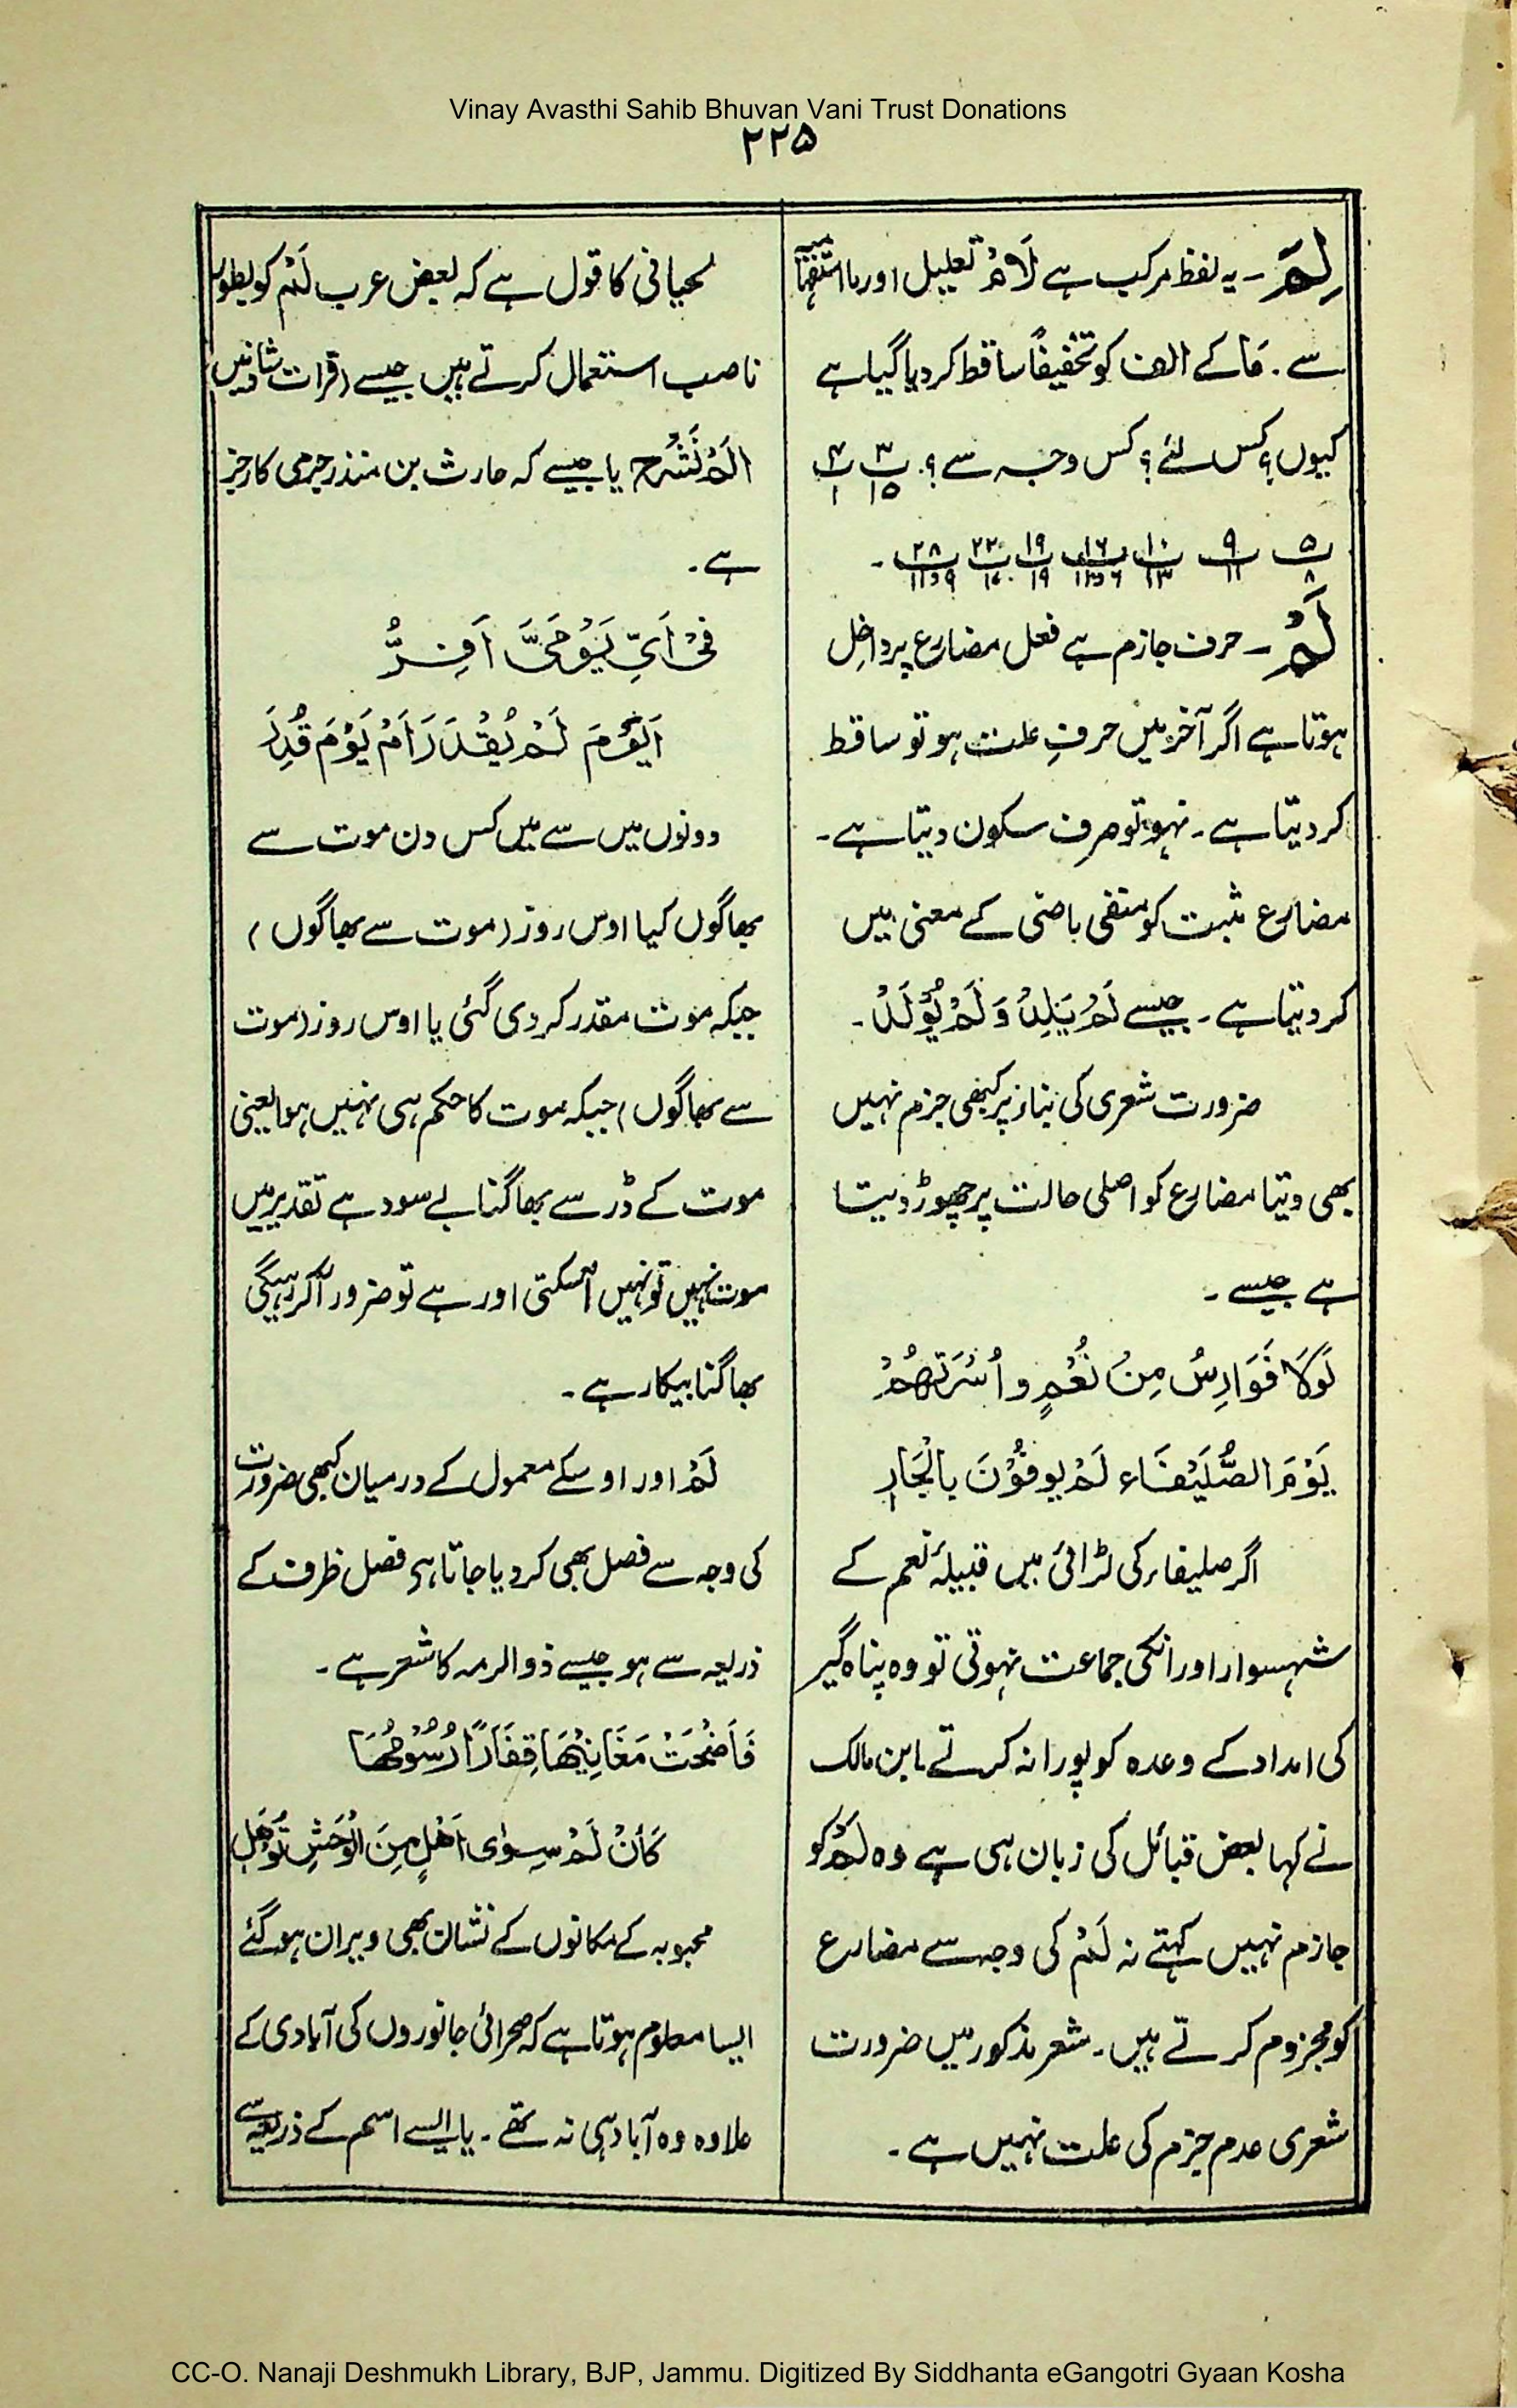 Vinay Avasthi Sahib Bhuvan Vani Trust Donations
۲۲۵
لِمَ ۔ یہ لفظ مرکب ہے لَامْ تعلیل اور ما استفہامیہ
سے ۔ مَا کے الف کو تخفیفاً ساقط کر دیا گیا ہے
کیوں؟ کس لئے؟ کس وجہ سے؟ ۔ پ۳ ۱۵ پ۴ ۱
پ۵ ۸ پ۹ ۱۱ پ۱۰ ۱۳ پ۱۶ پ۱۹ ۱۹ پ۲۸ ۹ و ۱۱ ۔
لَمْ ۔ حرف جازم ہے فعل مضارع پر داخل
ہوتا ہے اگر آخر میں حرفِ علت ہو تو ساقط
کر دیتا ہے ۔ نہو تو صرف سکون دیتا ہے ۔
مضارع مثبت کو منفی ماضی کے معنی میں
کر دیتا ہے ۔ جیسے لَمْ یَلِدْ وَ لَمْ یُوْلَدْ ۔
ضرورت شعری کی بناء پر کبھی جزم نہیں
بھی دیتا مضارع کو اصلی حالت پر چھوڑ دیتا
ہے جیسے ۔
لَوْلَا فَوَارِسُ مِنْ نُعْمٍ و اُسْرَتِھُمْ
یَوْمَ الصُّلَیْفَاء لَمْ یوفُوْنَ بالْجَارِ
اگر صلیفاء کی لڑائی میں قبیلۂ نعم کے
شہسوار اور انکی جماعت نہوتی تو وہ پناہ گیر
کی امداد کے وعدہ کو پورا نہ کرتے ۔ ابن مالک
نے کہا بعض قبائل کی زبان ہی ہے وہ لَمْ کو
جازم نہیں کہتے نہ لَمْ کی وجہ سے مضارع
کو مجزوم کرتے ہیں ۔ شعر مذکور میں ضرورت
شعری عدم جزم کی علت نہیں ہے ۔
لحیانی کا قول ہے کہ بعض عرب لَمْ کو بطور
ناصب استعمال کرتے ہیں جیسے (قرات شاذ میں)
اَلَمْ نَشْرَحَ یا جیسے کہ حارث بن منذر جرمی کا رجز
ہے ۔
فِیْ اَیِّ یَوْمَیَّ اَفِرُّ
اَیَوْمَ لَمْ یُقْدَرَ اَمْ یَوْمَ قُدِرَ
دونوں میں سے میں کس دن موت سے
بھاگوں کیا اوس روز (موت سے بھاگوں)
جبکہ موت مقدر کر دی گئی یا اوس روز (موت
سے بھاگوں) جبکہ موت کا حکم ہی نہیں ہوا یعنی
موت کے ڈر سے بھاگنا بے سود ہے تقدیر میں
موت نہیں تو نہیں آسکتی اور ہے تو ضرور آکر رہیگی
بھاگنا بیکار ہے ۔
لَمْ اور اوسکے معمول کے درمیان کبھی ضرورت
کی وجہ سے فصل بھی کر دیا جاتا ہے فصل ظرف کے
ذریعہ سے ہو جیسے ذوالرمہ کا شعر ہے ۔
فَاَضْحَتْ مَغَانِیْھَا قِفَارًا رُسُوْمُھَا
کَاَنْ لَمْ سِوٰی اَھْلٍ مِنَ الْوَحْشِ تُوْھَلِ
محبوبہ کے مکانوں کے نشان بھی ویران ہو گئے
ایسا معلوم ہوتا ہے کہ صحرائی جانوروں کی آبادی کے
علاوہ وہ آباد ہی نہ تھے ۔ یا ایسے اسم کے ذریعہ سے
CC-O. Nanaji Deshmukh Library, BJP, Jammu. Digitized By Siddhanta eGangotri Gyaan Kosha